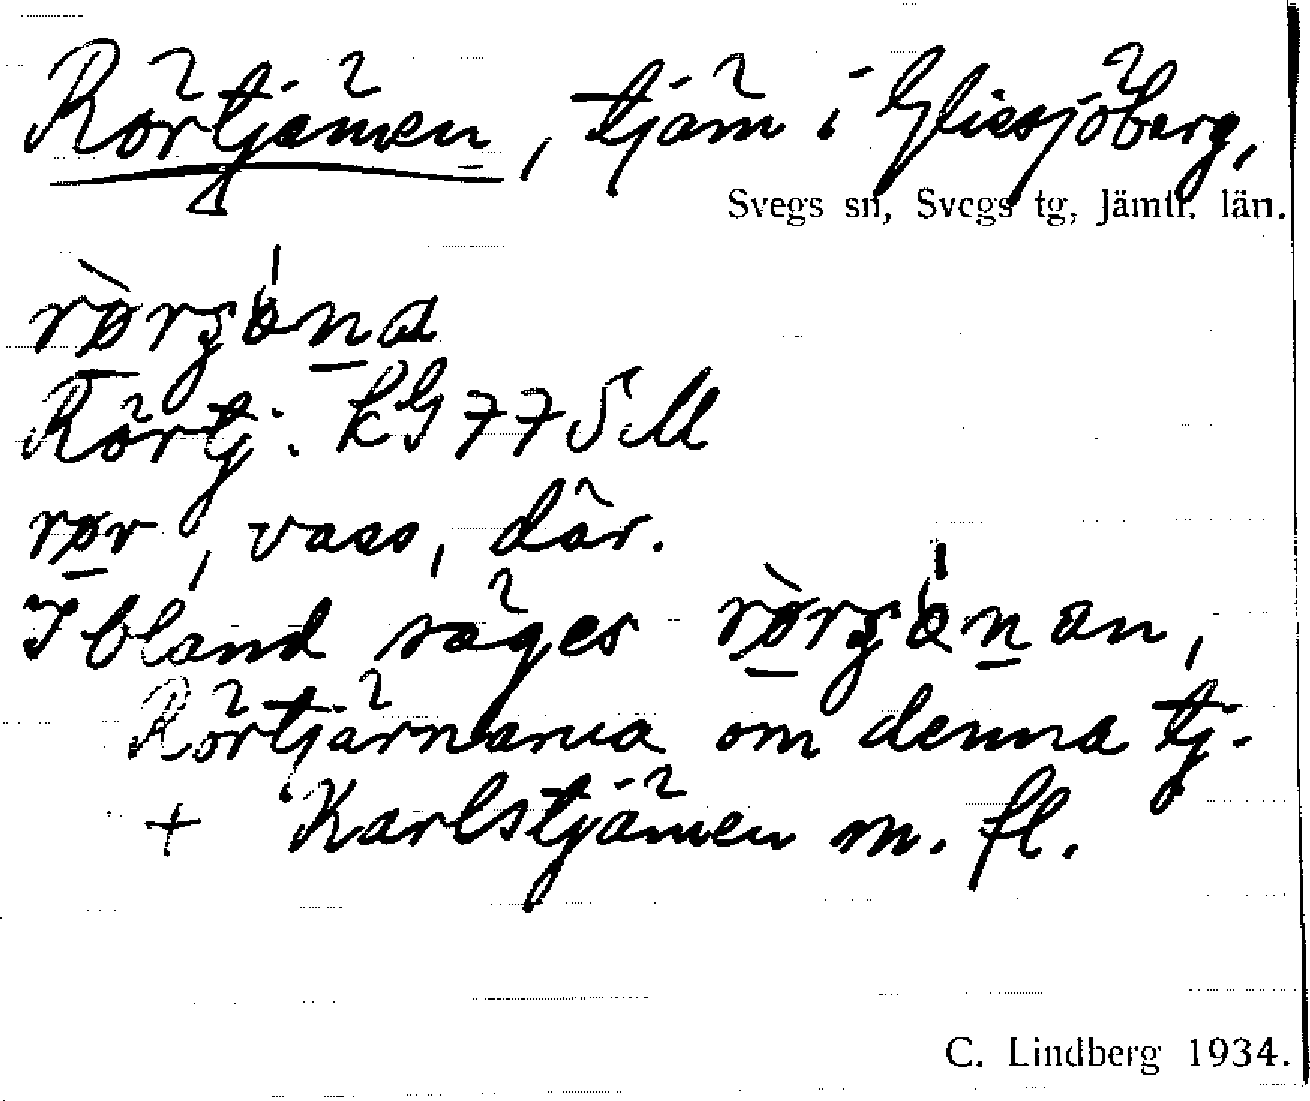 Rörtjärnen, tjärn i Glissjöberg,
Svegs sn, Svegs tg, Jämtl. län.
Rörtj. kG 77 SM
rør, vass, där.
Ibland säges
Rörtjärnarna om denna tj.
+ Karlstjärnen m. fl.
C. Lindberg 1934.